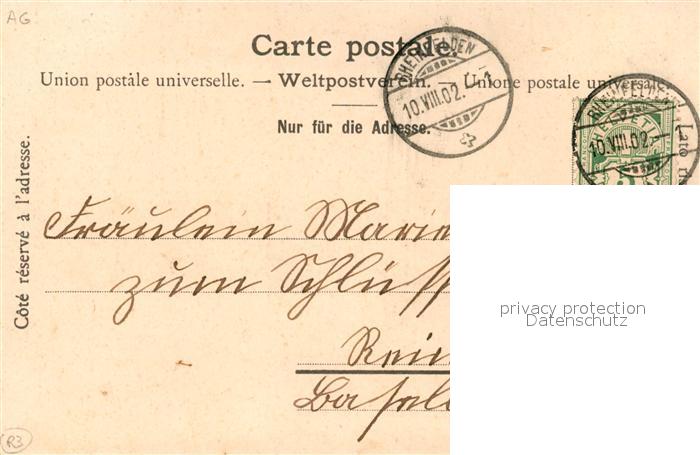 AG
Carte postale.
Union postale universelle. — Weltpostverein. — Unione postale universale
Nur für die Adresse.
RHEINFELDEN
10.VIII.02. - 1
RHEINFELDEN
10.VIII.02. -
HELVETIA
5
Côté réservé à l'adresse.
Lato
Fräulein Marie
zum Schlüss
Rein
Basel
privacy protection
Datenschutz
R3